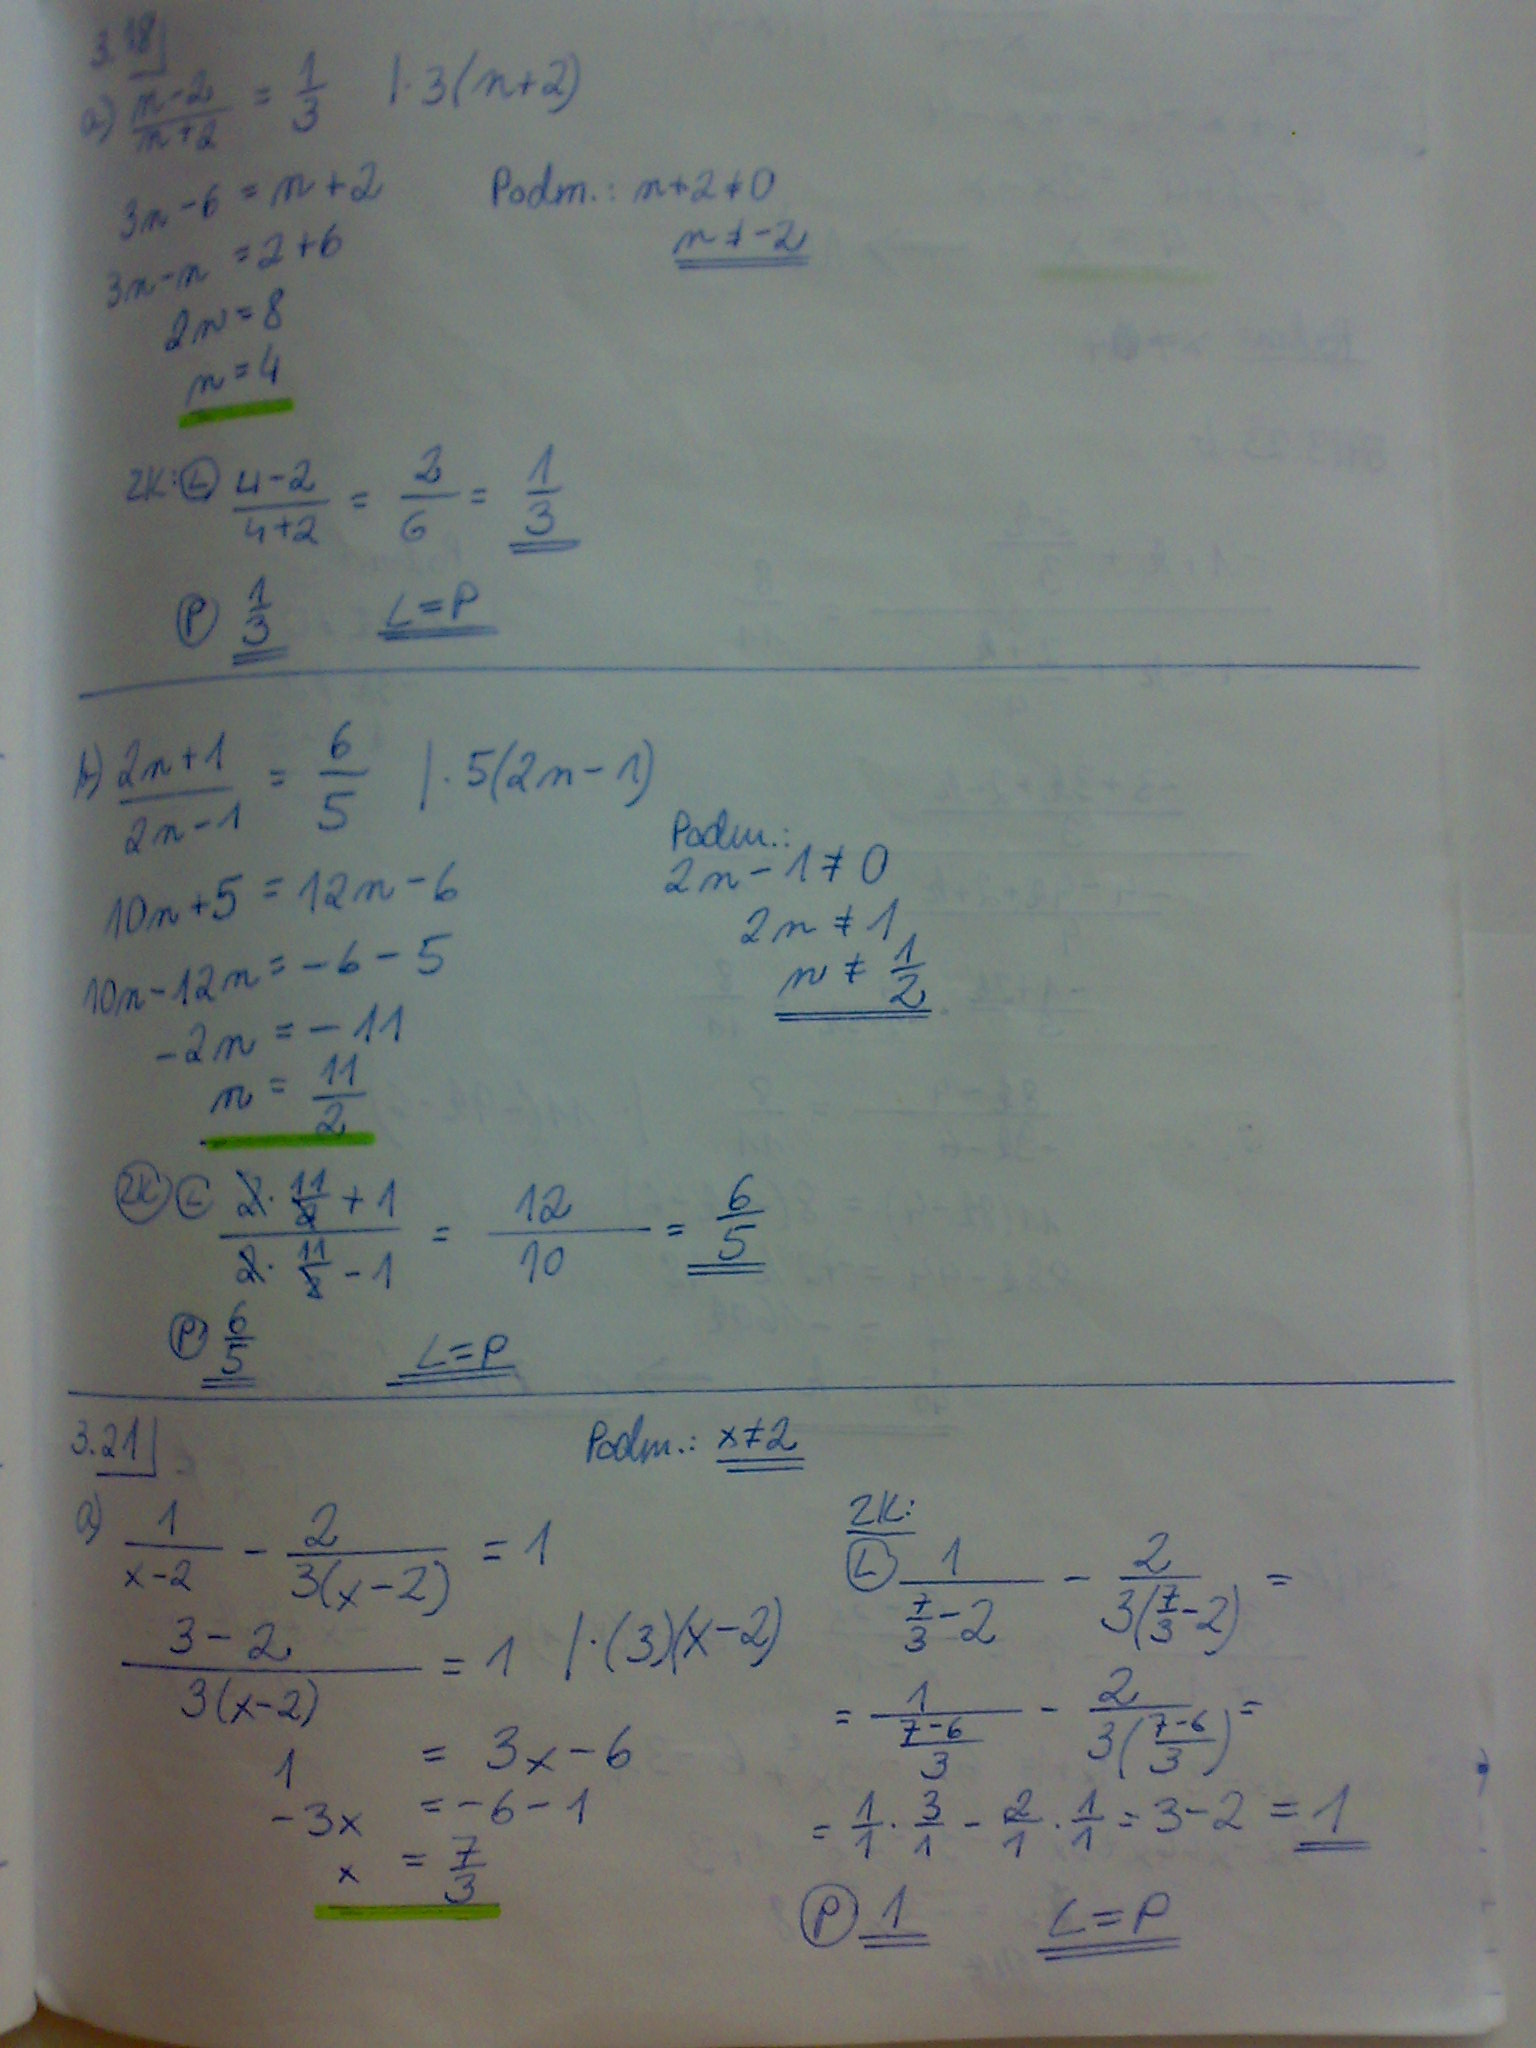 3.18
a) (n-2)/(n+2) = 1/3 | · 3(n+2)
3n-6 = n+2
Podm.: n+2≠0
n≠-2
3n-n = 2+6
2n = 8
n = 4
ZK: (L) (4-2)/(4+2) = 2/6 = 1/3
(P) 1/3 L=P
b) (2n+1)/(2n-1) = 6/5 | · 5(2n-1)
Podm.:
2n-1≠0
2n≠1
n≠1/2
10n+5 = 12n-6
10n-12n = -6-5
-2n = -11
n = 11/2
(ZK) (L) (2·11/2+1)/(2·11/2-1) = 12/10 = 6/5
(P) 6/5 L=P
3.21
Podm.: x≠2
a) 1/(x-2) - 2/(3(x-2)) = 1
(3-2)/(3(x-2)) = 1 | ·(3)(x-2)
1 = 3x-6
-3x = -6-1
x = 7/3
ZK:
(L) 1/(7/3-2) - 2/(3(7/3-2)) =
= 1/((7-6)/3) - 2/(3((7-6)/3)) =
= 1/1 · 3/1 - 2/1 · 1/1 = 3-2 = 1
(P) 1 L=P